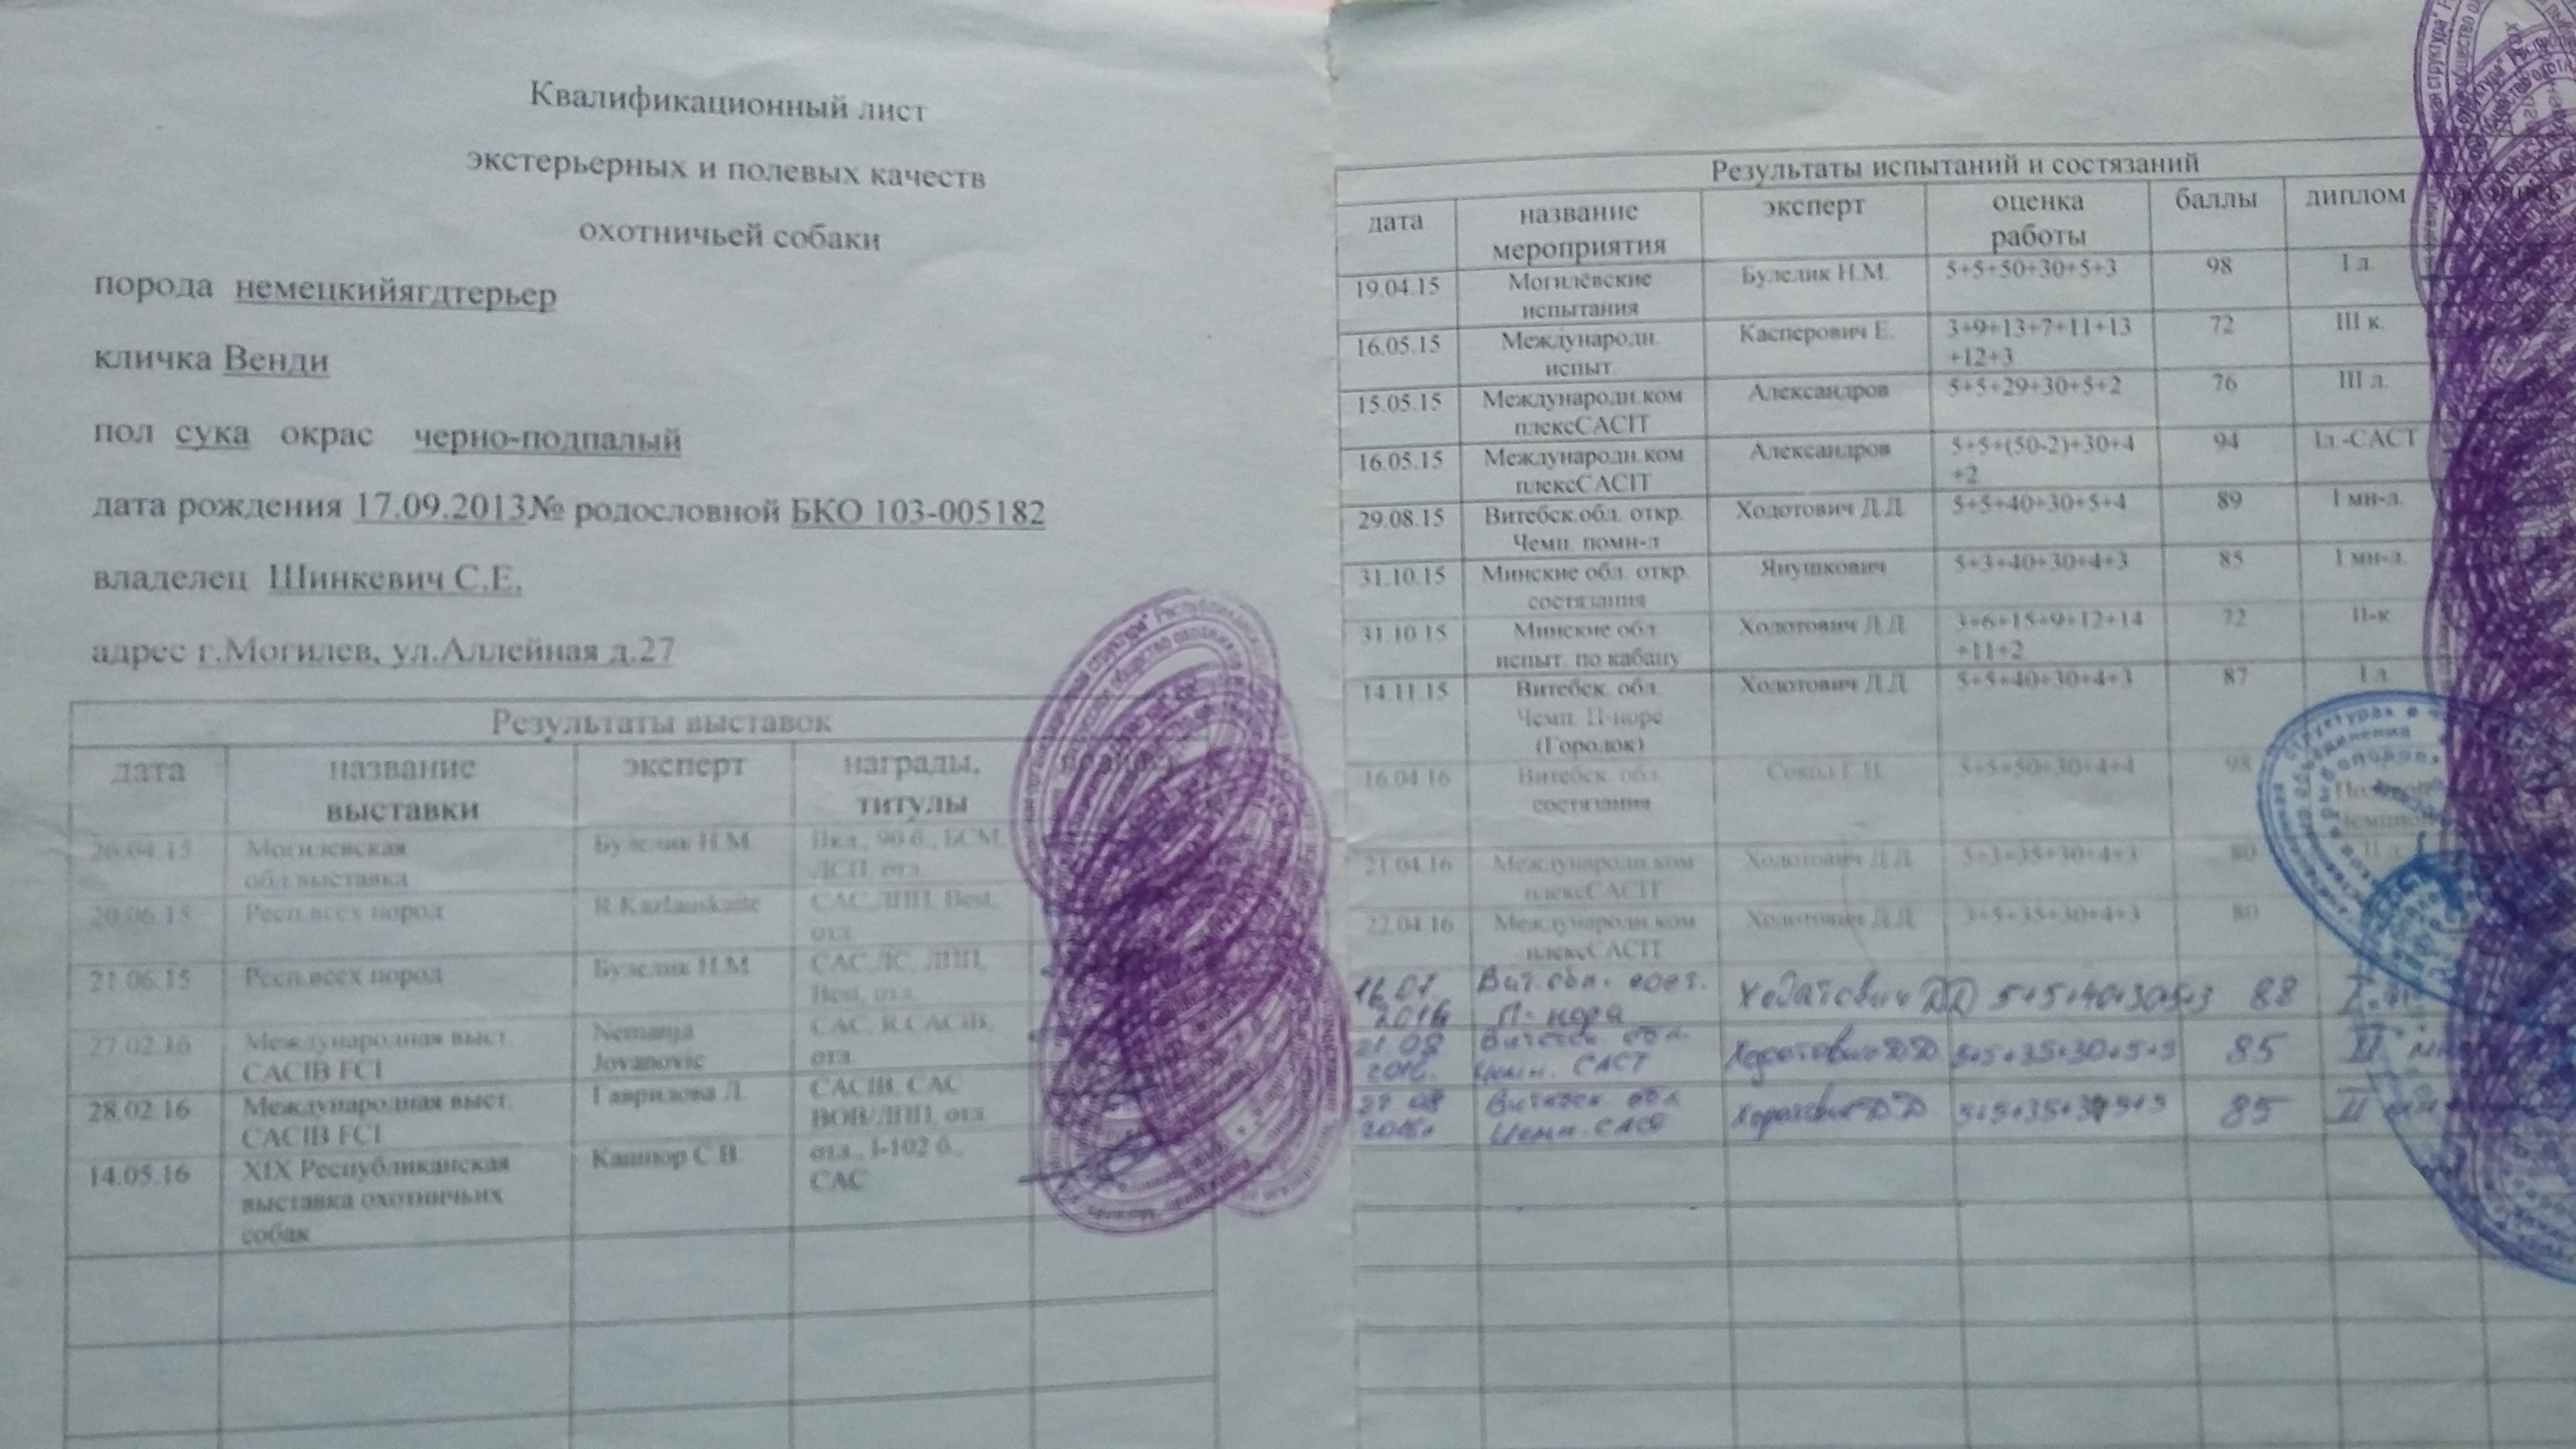 Квалификационный лист
экстерьерных и полевых качеств
охотничьей собаки
порода немецкийягдтерьер
кличка Венди
пол сука окрас черно-подпалый
дата рождения 17.09.2013№ родословной БКО 103-005182
владелец Шинкевич С.Е.
адрес г.Могилев, ул.Аллейная д.27
Результаты выставок
дата название эксперт награды,
выставки титулы
26.04.15 Могилевская Булелик Н.М.
обл.выставка
20.06.15 Респ.всех пород R.Kazlauskaite САС,ЛПП, Best,
отл.
21.06.15 Респ.всех пород Булелик Н.М. САС,ЛС, ЛПП,
Best, отл.
27.02.16 Международная выст. Nemanja САС, R.CACIB,
CACIB FCI Jovanovic отл.
28.02.16 Международная выст. Гаврилова Л. CACIB, САС
CACIB FCI ВОВ/ЛПП, отл.
14.05.16 XIX Республиканская отл., I-102 б.,
выставка охотничьих САС
собак
Результаты испытаний и состязаний
дата название эксперт оценка баллы диплом
мероприятия работы
19.04.15 Могилёвские Булелик Н.М. 5+5+50+30+5+3 98 I л.
испытания
16.05.15 Международн. Касперович Е. 3+9+13+7+11+13 72 III к.
испыт. +12+3
15.05.15 Международн.ком Александров 5+5+29+30+5+2 76 III л.
плексCACIT
16.05.15 Международн.ком Александров 5+5+(50-2)+30+4 94 Iл.-САСТ
плексCACIT +2
29.08.15 Витебск.обл. откр. Холотович Д.Д. 5+5+40+30+5+4 89 I мн-л.
Чемп. помн-л
31.10.15 Минские обл. откр. Янушкович 5+3+40+30+4+3 85 I мн-л.
состязания
31.10.15 Минские обл. Холотович Д.Д. 3+6+15+9+12+14 72 II-к
испыт. по кабану +11+2
14.11.15 Витебск. обл. Холотович Д.Д. 5+5+40+30+4+3 87 I л.
Чемп. П-норе
(Городок)
16.04.16 Витебск. обл. Сокол Г.Н. 5+5+50+30+4+4 98
состязания
21.04.16 Международн.ком Холотович Д.Д. 5+3+35+30+4+3 80 II л.
плексCACIT
22.04.16 Международн.ком Холотович Д.Д. 3+5+35+30+4+3 80
плексCACIT
16.07 Вит.обл. сост. Холотович ДД 5+5+40+30+5+3 88 I
2016 П-нора
21 08 Витебск обл. Холотович ДД 85 II
2016. Чемп. САСТ
Витебск обл Холотович ДД 85 II
2016 Чемп.